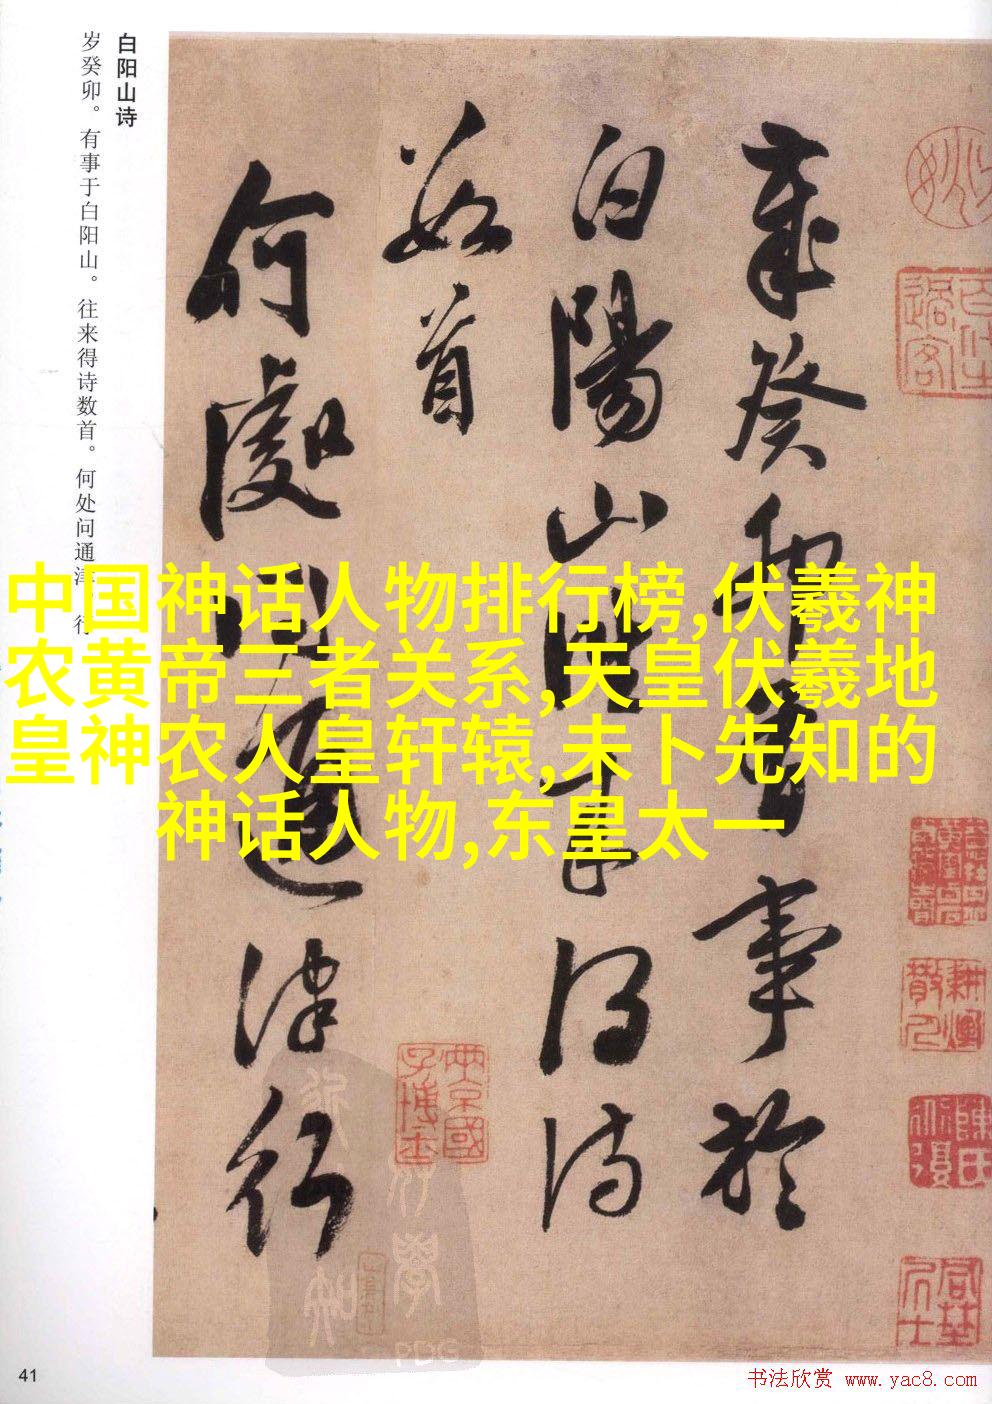 白阳山诗
岁癸卯。有事于白阳山。往来得诗数首。何处问通津。行
歲癸卯有事於
白陽山往來得詩
數首
何處問通津行
中国神话人物排行榜,伏羲神
农黄帝三者关系,天皇伏羲地
皇神农人皇轩辕,未卜先知的
神话人物,东皇太一
41
书法欣赏 www.yac8.com